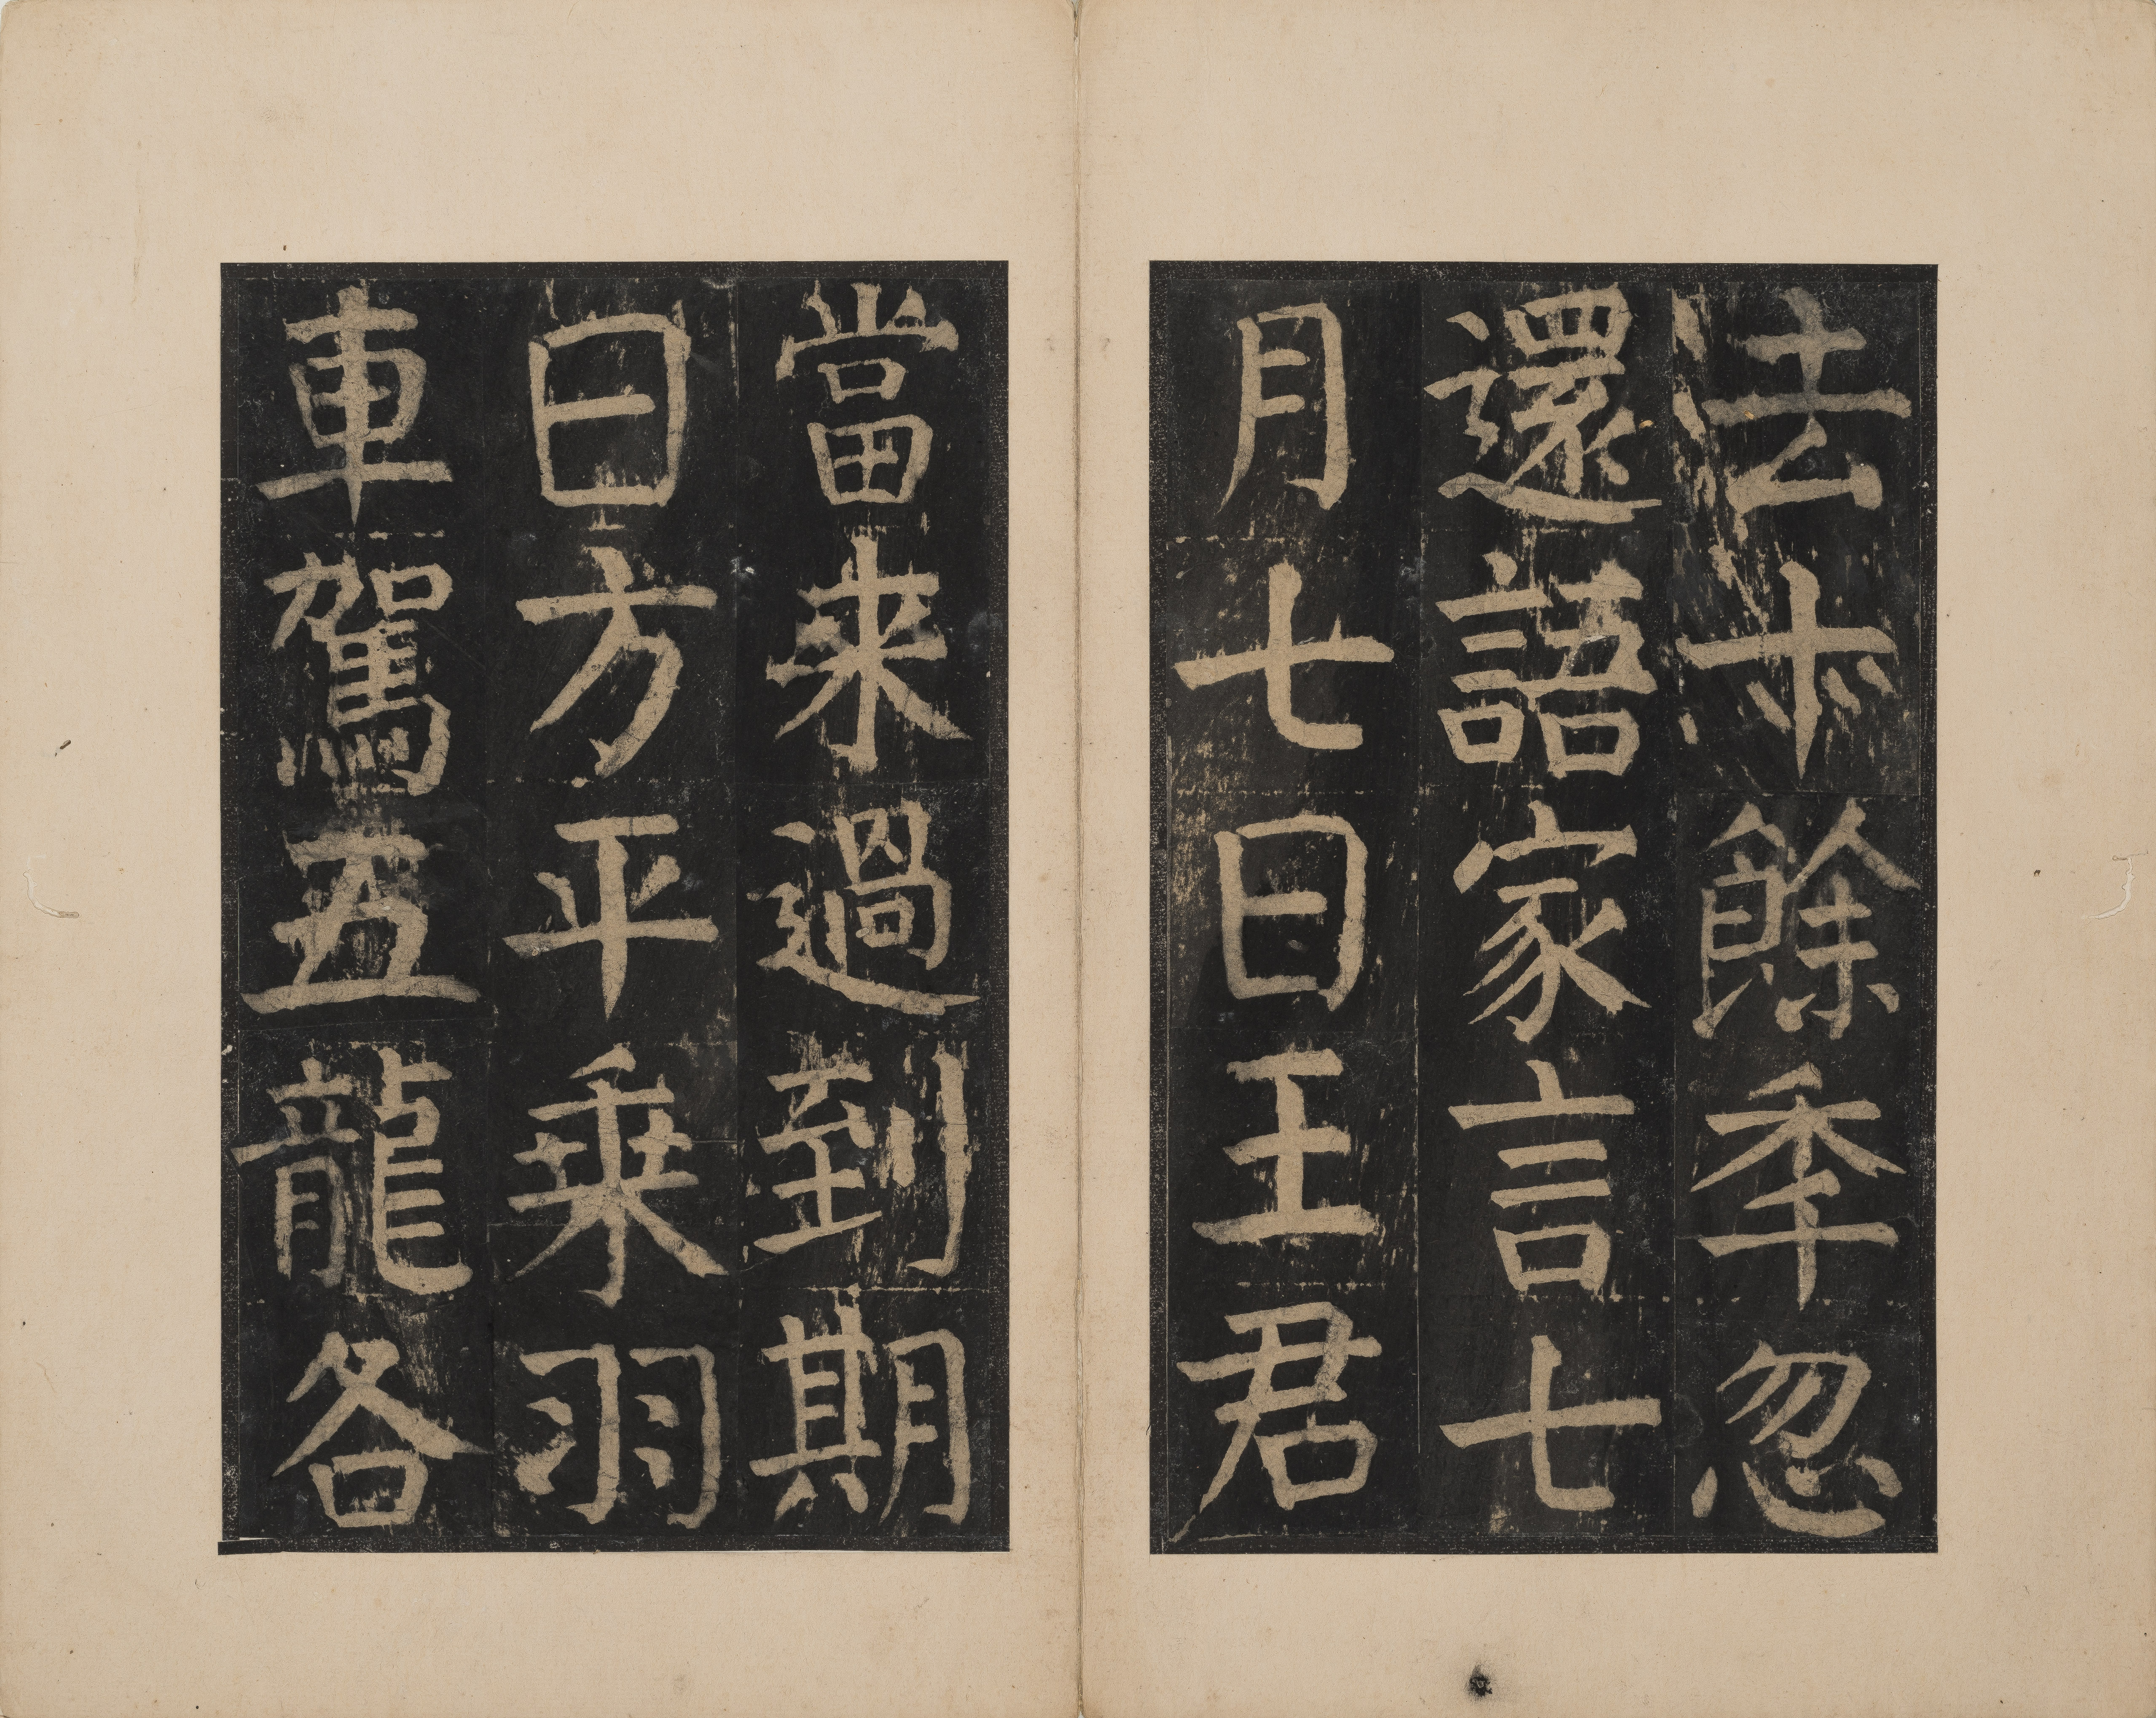 去十餘秊忽
還語家言七
月七日王君
當来過到期
日方平乗羽
車駕五龍各